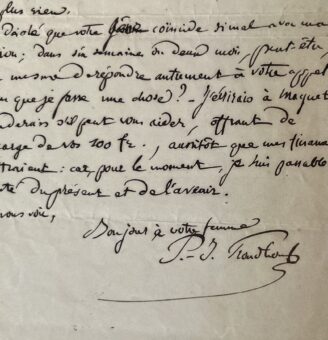 plus rien.
désolé que votre gêne coïncide si mal avec ma
; dans six semaines ou deux mois, peut être,
mesure de répondre autrement à votre appel
que je fasse une chose? J'écrirais à Maquet
s'il peut vous aider, offrant de
de vos 100 fr., aussitôt que mes finances
: car, pour le moment, je suis passable
du présent et de l'avenir.
Bonjour à votre femme
P.-J. Proudhon